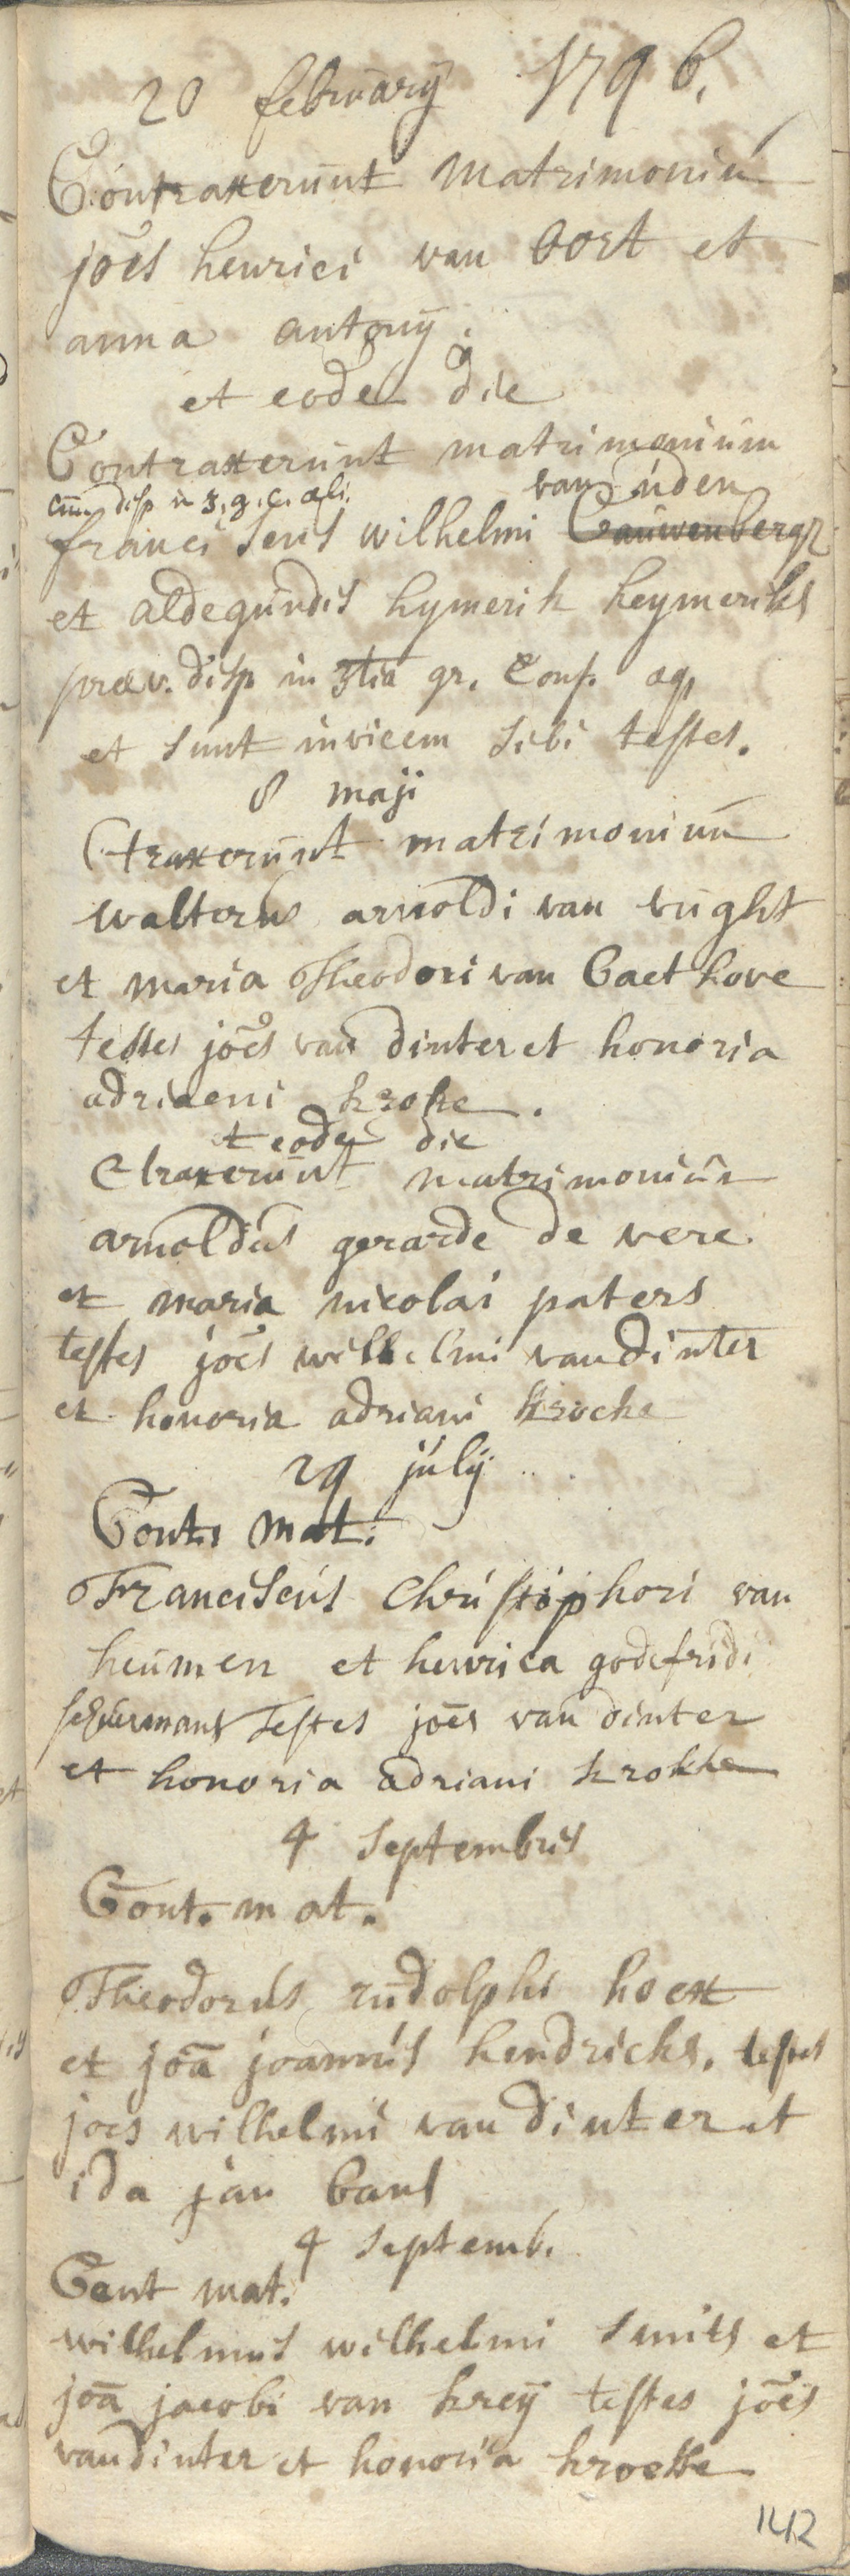 20 februarÿ 1796.
Contraxerunt matrimoniu
joes henrici van oort et
anna antonÿ.
et eode die
Contraxerunt matrimonium
cum disp in 3. g. c. æli. van uden
franciscus wilhelmi Cauwenbergh
et aldegundis hymerik heymeriks
præv. disp in 3tia gr. Cons. æq.
et sunt invicem sibi testes.
8 maji
Ctraxerunt matrimoniu
walterus arnoldi van vught
et maria Theodori van Caethove
testes joes van dinter et honoria
adriaeni kroke.
et eode die
Ctraxerunt matrimoniu
arnoldus gerarde de vere.
et maria nicolai paters
testes joes wilhelmi van dinter
et honoria adriani kroche
29 julÿ
Cont. mat.
Franciscus Christophori van
heumen et henrica godefridi
schuermans Testes joes van dinter
et honoria adriani krokke
4 septembris
Cont. mat.
Theodorus rudolphi hoex
et joa joannis hendricks. testes
joes wilhelmi van dinter et
ida jan bans
4 septemb.
Cont mat.
wilhelmus wilhelmi smits et
joa jacobi van kreÿ testes joes
van dinter et honoria kroekke
142